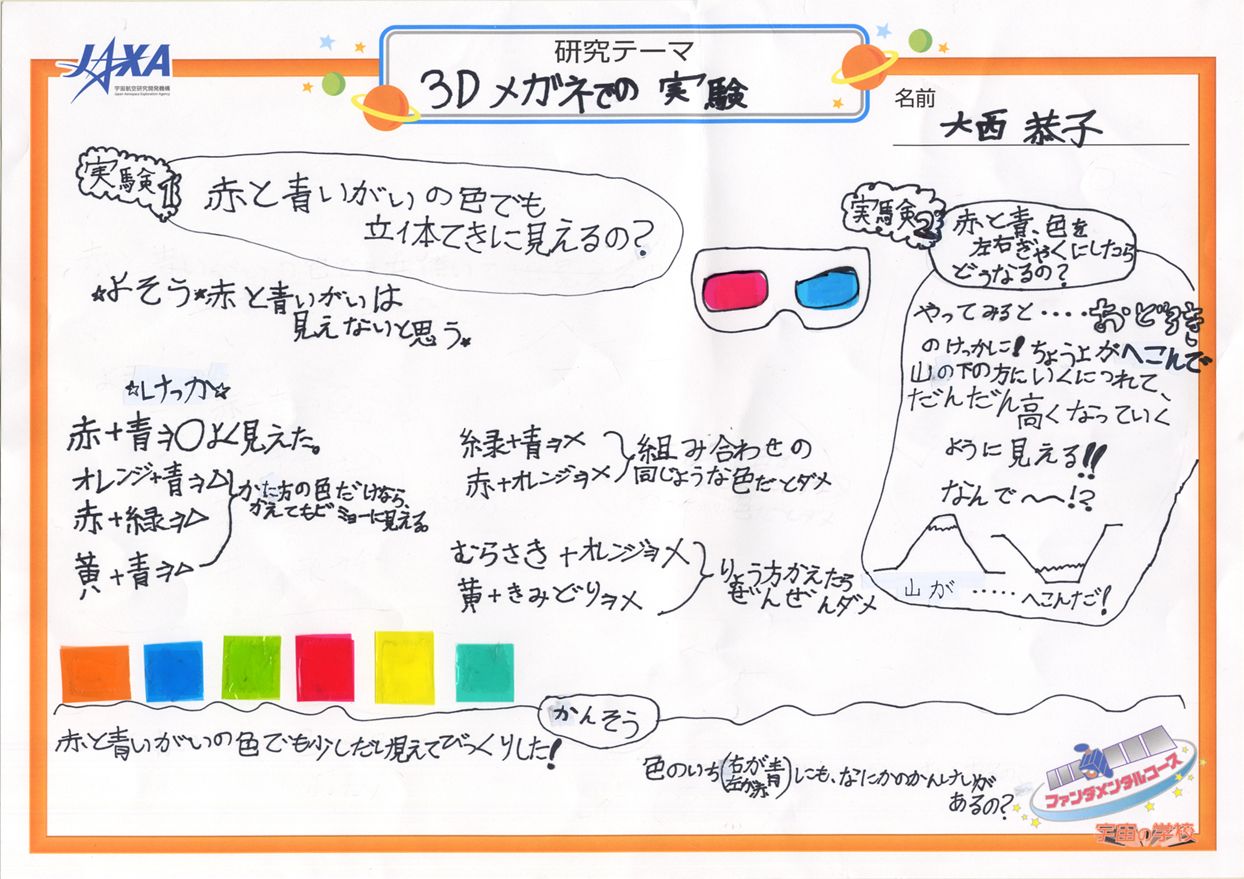 JAXA
宇宙航空研究開発機構
Japan Aerospace Exploration Agency
研究テーマ
3Dメガネでの 実験
名前
大西 恭子
実験1
赤と青いがいの色でも
立体てきに見えるの?
☆よそう☆赤と青いがいは
見えないと思う。
☆けっか☆
赤+青⇒○よく見えた。
オレンジ+青⇒△
赤+緑⇒△
黄+青⇒△
かた方の色だけなら、
かえてもビミョーに見える。
緑+青⇒×
赤+オレンジ⇒×
組み合わせの
同じような色だとダメ
むらさき+オレンジ⇒×
黄+きみどり⇒×
りょう方かえたら
ぜんぜんダメ
実験2
赤と青、色を
左右ぎゃくにしたら
どうなるの?
やってみると・・・・おどろき
のけっかに!ちょう上がへこんで
山の下の方にいくにつれて、
だんだん高くなっていく
ように見える!!
なんで〜〜!?
山が ・・・・・へこんだ!
かんそう
赤と青いがいの色でも少しだけ見えてびっくりした!
色のいち(右が青 左が赤)にも、なにかのかんけいが
あるの?
ファンダメンタルコース
宇宙の学校